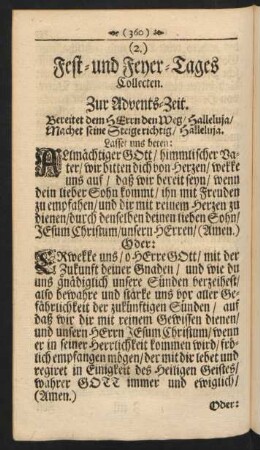 (360)
(2.)
Fest- und Feyer-Tages
Collecten.
Zur Advents-Zeit.
Bereitet dem HErrn den Weg/ Halleluja/
Machet seine Steige richtig/ Halleluja.
Lasset uns beten:
ALmächtiger GOtt/ himmlischer Va-
ter/ wir bitten dich von Herzen/ wekke
uns auf/ daß wir bereit seyn/ wenn
dein lieber Sohn kommt/ ihn mit Freuden
zu empfahen/ und dir mit reinem Herzen zu
dienen/ durch denselben deinen lieben Sohn/
JEsum Christum/ unsern HErren/ (Amen.)
Oder:
ERwekke uns/ o HErre GOtt/ mit der
Zukunft deiner Gnaden/ und wie du
uns gnädiglich unsere Sünden verzeihest/
also bewahre und stärke uns vor aller Ge-
fährlichkeit der zukünftigen Sünden/ auf
daß wir dir mit reinem Gewissen dienen/
und unsern HErrn JEsum Christum/ wenn
er in seiner Herrlichkeit kommen wird/ frö-
lich empfangen mögen/ der mit dir lebet und
regiret in Einigkeit des Heiligen Geistes/
wahrer GOTT immer und ewiglich/
(Amen.)
Oder: